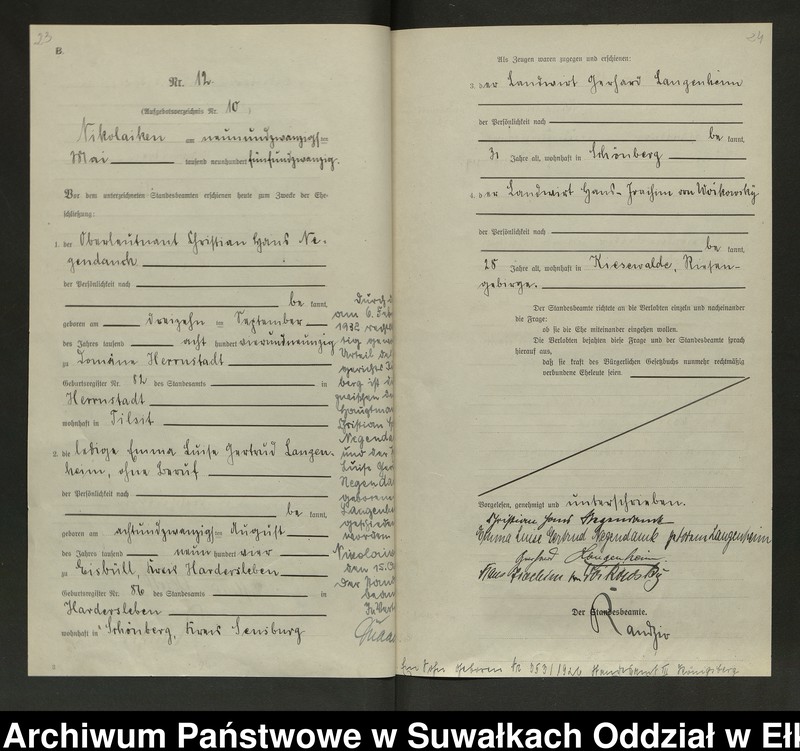 23
B.
Nr. 12.
(Aufgebotsverzeichnis Nr. 10)
Nikolaiken am neunundzwanzigs=
Mai tausend neunhundert fünfundzwanzig.
Vor dem unterzeichneten Standesbeamten erschienen heute zum Zwecke der Ehe-
schließung:
1. der Oberleutnant Christian Hans Ne-
gendanck
der Persönlichkeit nach
be kannt,
geboren am dreizehn ten September
des Jahres tausend acht hundert vierundneunzig
zu Domäne Herrnstadt
Geburtsregister Nr. 82 des Standesamts in
Herrnstadt
wohnhaft in Tilsit
2. die ledige Emma Luise Gertrud Langen-
heim, ohne Beruf
der Persönlichkeit nach
be kannt,
geboren am achtundzwanzigs= August
des Jahres tausend neun hundert vier
zu Eisbüll, Kreis Hardersleben
Geburtsregister Nr. 86 des Standesamts in
Hardersleben
wohnhaft in Schönberg, Kreis Sensburg
Durch
am 6. Feb
1932
Urteil
berg ist
zwischen
Hauptman
Christian
Negenda
und der
Luise
Negenda
geboren
Langenh
worden
Nikolai
den 15.
Der Stand
24
Als Zeugen waren zugegen und erschienen:
3. der Landwirt Gerhard Langenheim
der Persönlichkeit nach
be kannt,
31 Jahre alt, wohnhaft in Schönberg
4. der Landwirt Hans-Joachim von Woikowsky
der Persönlichkeit nach
be kannt,
28 Jahre alt, wohnhaft in Kiesewalde, Riesen-
gebirge.
Der Standesbeamte richtete an die Verlobten einzeln und nacheinander
die Frage:
ob sie die Ehe miteinander eingehen wollen.
Die Verlobten bejahten diese Frage und der Standesbeamte sprach
hierauf aus,
daß sie kraft des Bürgerlichen Gesetzbuchs nunmehr rechtmäßig
verbundene Eheleute seien.
Vorgelesen, genehmigt und unterschrieben.
Christian Hans Negendanck
Emma Luise Gertrud Negendank geborene Langenheim
Gerhard Langenheim
Hans Joachim von Woikowsky
Der Standesbeamte.
Randzio
Ein Sohn geboren Nr 953/1926 Standesamt II Königsberg
Archiwum Państwowe w Suwałkach Oddział w Eł